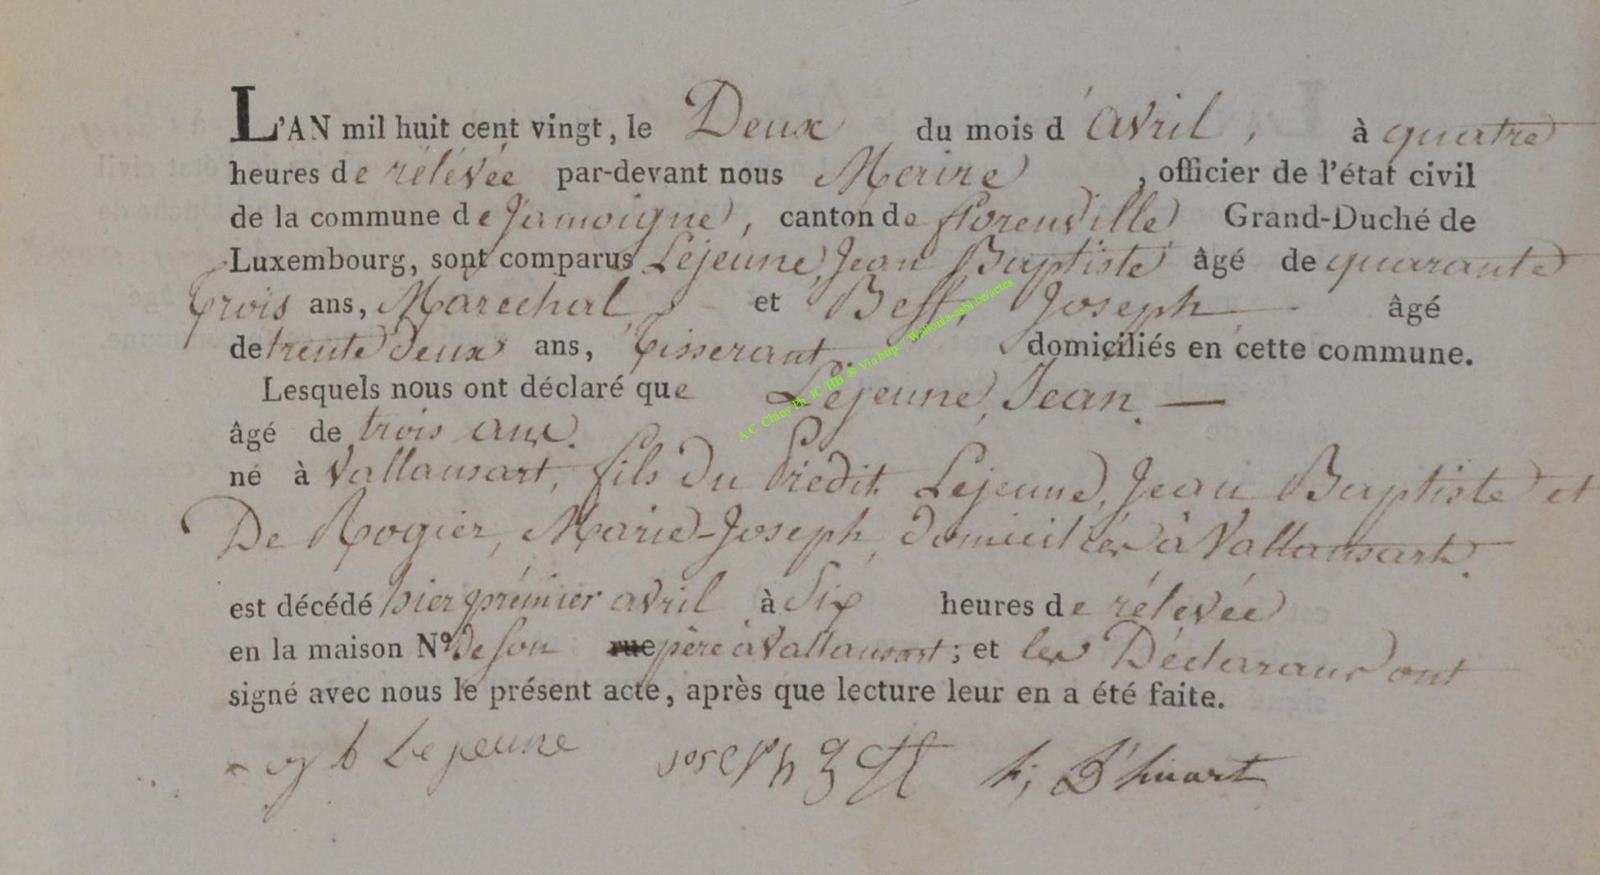 L'AN mil huit cent vingt, le Deux du mois d'avril, à quatre
heures de rélévée par-devant nous , officier de l'état civil
de la commune de Jamoigne, canton de florenville Grand-Duché de
Luxembourg, sont comparus Lejeune, Jean Baptiste âgé de quarante
trois ans, Maréchal, et Beff, Joseph âgé
de trente deux ans, Tisserant. domiciliés en cette commune.
Lesquels nous ont déclaré que Lejeune, Jean. —
âgé de trois ans.
né à Vallansart, fils du Prédit Lejeune, Jean Baptiste et
De Rogier, Marie-Joseph, domiciliés à Vallansart.
est décédé hier prémier avril à Six heures de rélevée
en la maison Nº de son rue père à Vallansart ; et les Déclarans ont
signé avec nous le présent acte, après que lecture leur en a été faite.
Lejeune joseph D'huart
A.C. Chiny Ph JC/HB & Via http://